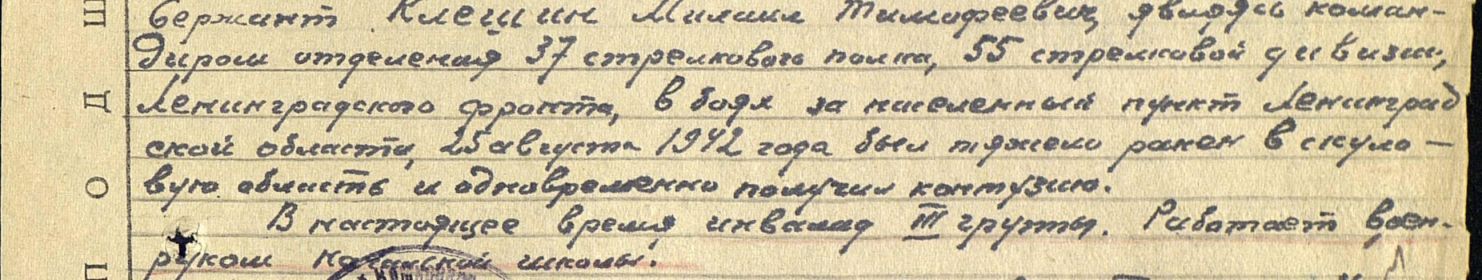 Сержант Клещин Михаил Тимофеевич, являясь коман-
диром отделения 37 стрелкового полка, 55 стрелковой дивизии,
Ленинградского фронта, в боях за населенный пункт Ленинград
ской области, 25 августа 1942 года был тяжело ранен в скуло-
вую область и одновременно получил контузию.
В настоящее время инвалид III группы. Работает воен-
руком школы.